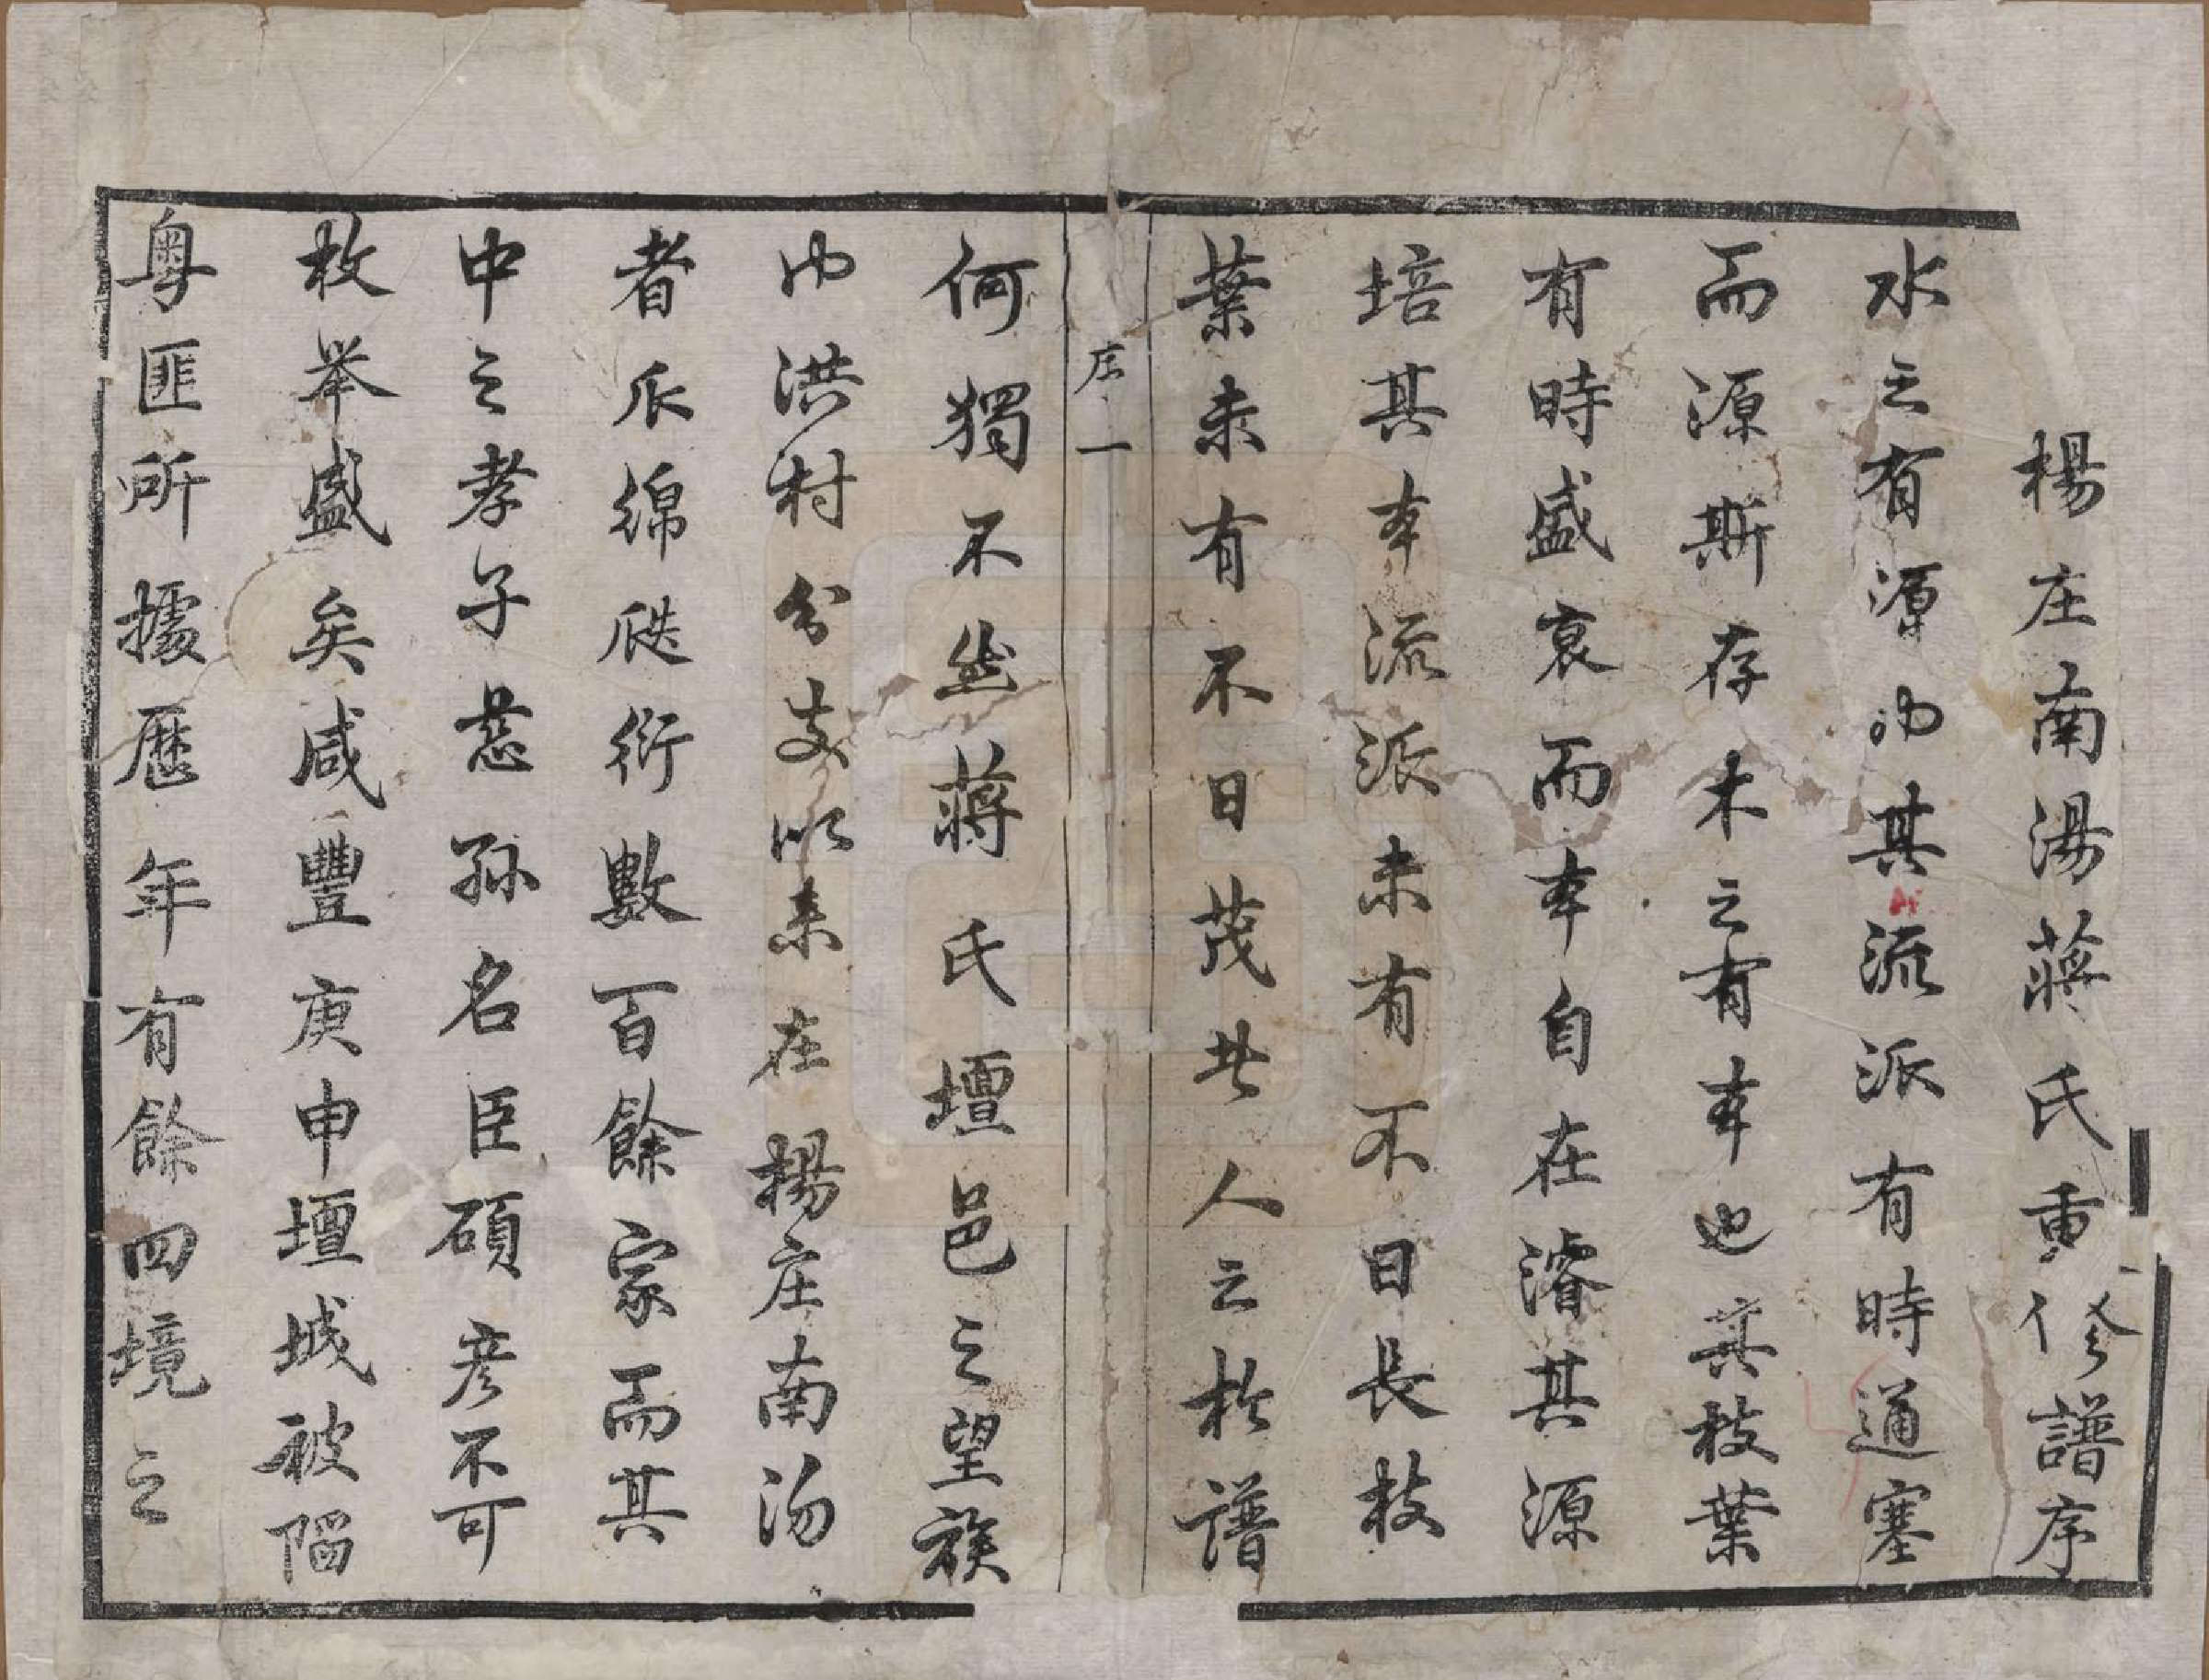 楊庄南湯蔣氏重修譜序
水之有源也其流派有時通塞
而源斯存木之有本也其枝葉
有時盛衰而本自在濬其源
培其本流派未有不日長枝
葉未有不日茂者人之於譜
序一
何獨不然蔣氏壇邑之望族
也洪村分支以來在楊庄南汤
者瓜綿瓞衍數百餘家而其
中之孝子慈孫名臣碩彥不可
枚举盛矣咸豐庚申壇城被陷
粵匪所據歷年有餘四境之